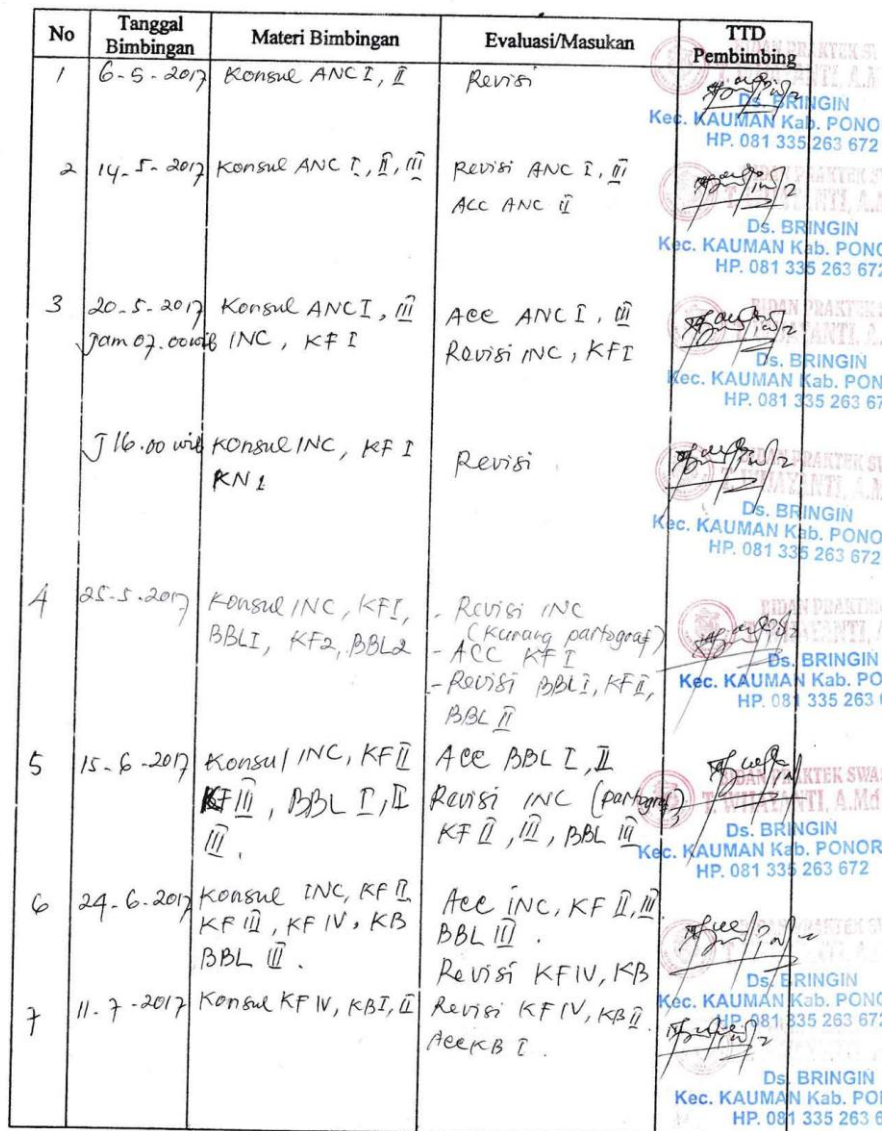 No Tanggal Bimbingan Materi Bimbingan Evaluasi/Masukan TTD Pembimbing
1 6-5-2017 Konsul ANC I, II Revisi
Ds. BRINGIN
Kec. KAUMAN Kab. PONO
HP. 081 335 263 672
2 14-5-2017 Konsul ANC I, II, III Revisi ANC I, III
ACC ANC II
Ds. BRINGIN
Kec. KAUMAN Kab. PONO
HP. 081 335 263 672
3 20-5-2017 Konsul ANC I, III Acc ANC I, III
BIDAN PRAKTEK
Jam 07.00 wib INC, KF I Revisi INC, KF I
Ds. BRINGIN
Kec. KAUMAN Kab. PON
HP. 081 335 263 67
J 16.00 wib Konsul INC, KF I Revisi
KN 1
Ds. BRINGIN
Kec. KAUMAN Kab. PONO
HP. 081 335 263 672
4 25-5-2017 Konsul INC, KF I, - Revisi INC
BBL I, KF 2, BBL 2 (kurang partograf)
- ACC KF I
- Revisi BBL I, KF II,
BBL II
Ds. BRINGIN
Kec. KAUMAN Kab. PO
HP. 081 335 263
5 15-6-2017 Konsul INC, KF II Acc BBL I, II
KF III, BBL I, II Revisi INC (partograf)
III. KF II, III, BBL III
BIDAN PRAKTEK SWA
T. WIJAYANTI, A.Md
Ds. BRINGIN
Kec. KAUMAN Kab. PONOR
HP. 081 335 263 672
6 24-6-2017 Konsul INC, KF II, Acc INC, KF II, III
KF III, KF IV, KB BBL III.
BBL III. Revisi KF IV, KB
Ds. BRINGIN
Kec. KAUMAN Kab. PONO
HP. 081 335 263 672
7 11-7-2017 Konsul KF IV, KB I, II Revisi KF IV, KB II.
Acc KB I.
Ds. BRINGIN
Kec. KAUMAN Kab. PO
HP. 081 335 263 6